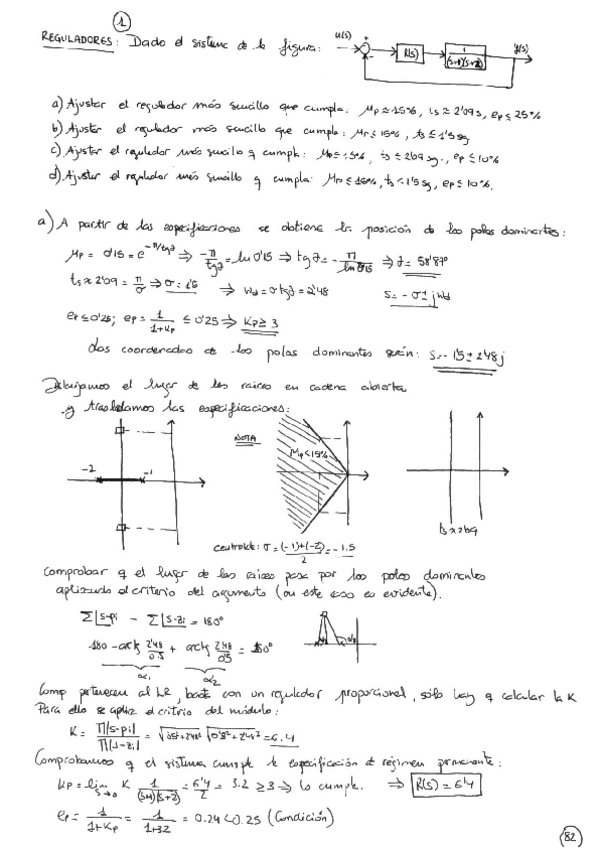 ①
REGULADORES: Dado el sistema de la figura: u(s) + - R(s) 1/(s+1)(s+2) y(s)
a) Ajustar el regulador más sencillo que cumpla: Mp ≈ 15%, ts ≈ 2'09 s, ep ≤ 25%
b) Ajustar el regulador más sencillo que cumpla: Mp ≤ 15%, ts ≤ 1'5 sg.
c) Ajustar el regulador más sencillo q cumpla: Mp ≤ 15%, ts ≤ 2'09 sg., ep ≤ 10%
d) Ajustar el regulador más sencillo q cumpla: Mp ≤ 15%, ts < 1'5 sg, ep ≤ 10%.
a) A partir de las especificaciones se obtiene la posición de los polos dominantes:
Mp = 0'15 = e^(-π/tg∂) ⇒ -π/tg∂ = ln 0'15 ⇒ tg∂ = -π/ln 0'15 ⇒ ∂ = 58'87°
ts ≈ 2'09 = π/σ ⇒ σ = 1'5 ⇒ Wd = σ tg∂ = 2'48 s = -σ ± jWd
ep ≤ 0'25; ep = 1/(1+Kp) ≤ 0'25 ⇒ Kp ≥ 3
Las coordenadas de los polos dominantes serán: s = -1'5 ± 2'48j
Dibujamos el lugar de las raíces en cadena abierta
y trasladamos las especificaciones:
NOTA
Mp < 15%
-2 -1
centroide: σ = (-1)+(-2)/2 = -1.5
Comprobar q el lugar de las raíces pasa por los polos dominantes
aplicando el criterio del argumento (en este caso es evidente).
Σ∠s-pi - Σ∠s-zi = 180°
180 - arctg 2'48/0.5 + arctg 2'48/0.5 = 180°
α₁ α₂
Como pertenecen al LR, basta con un regulador proporcional, sólo hay q calcular la K
Para ello se aplica el criterio del módulo:
K = Π|s-pi|/Π|s-zi| = √0'5²+2'48² √0'5²+2'48² = 6.4
Comprobamos q el sistema cumple la especificación de régimen permanente:
Kp = lim s→0 K 1/(s+1)(s+2) = 6'4/2 = 3.2 ≥ 3 → lo cumple. ⇒ R(s) = 6'4
ep = 1/(1+Kp) = 1/(1+3.2) = 0.24 < 0.25 (Condición)
82